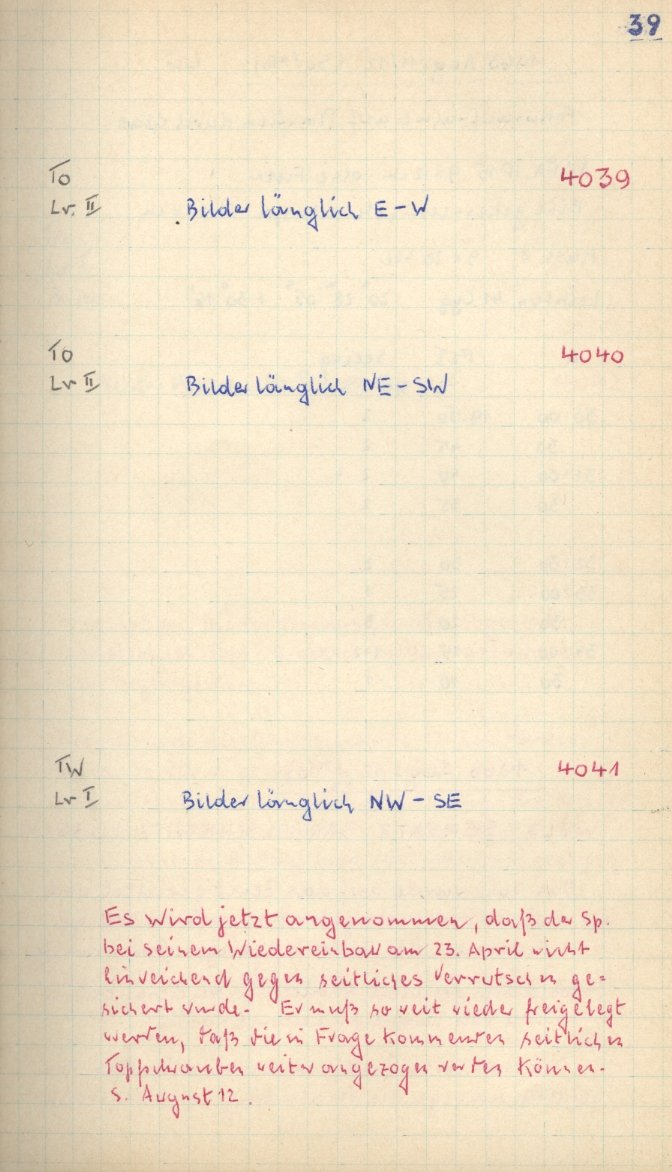 39
TO 4039
Lr. II Bilder länglich E-W
TO 4040
Lr II Bilder länglich NE-SW
TW 4041
Lr I Bilder länglich NW-SE
Es wird jetzt angenommen, daß der Sp.
bei seinem Wiedereinbau am 23. April nicht
hinreichend gegen seitliches Verrutschen ge=
sichert wurde. Er muß so weit wieder freigelegt
werden, daß die in Frage kommenden seitlichen
Topfschrauben weiter angezogen werden können.
S. August 12.